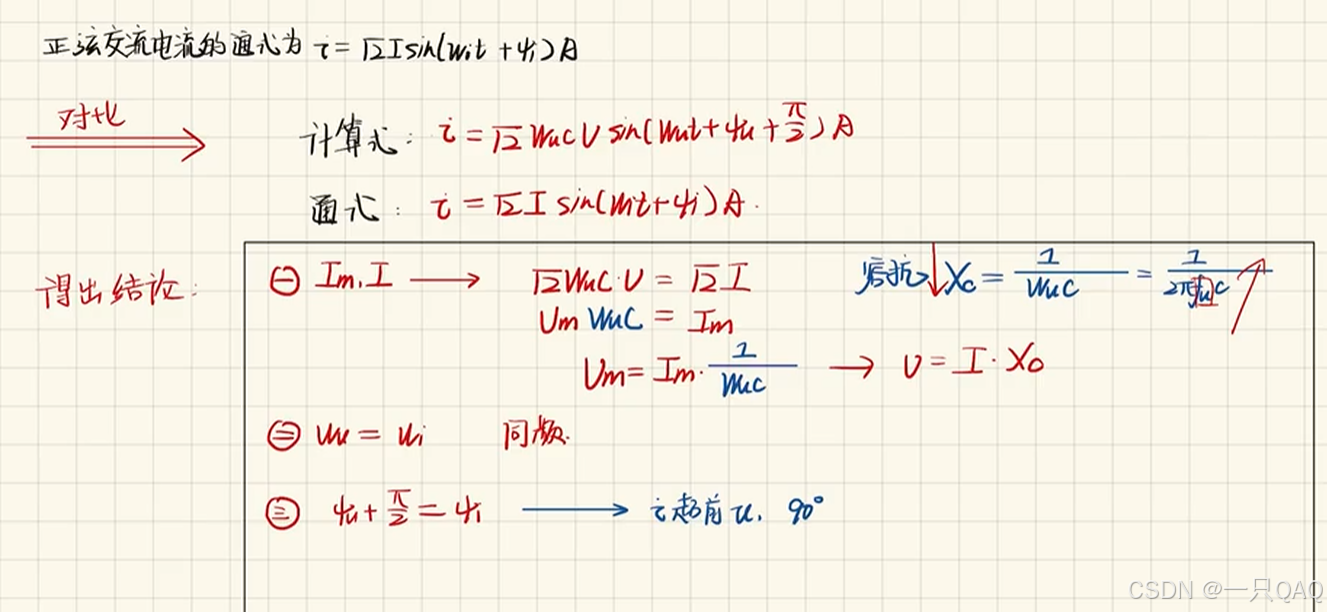 正弦交流电流的通式为 i=√2Isin(ωit+ψi)A
对比
计算式: i=√2ωuCUsin(ωut+ψu+π/2)A
通式: i=√2Isin(ωit+ψi)A.
得出结论:
㊀ Im,I → √2ωuC·U=√2I
容抗↓Xc=1/ωuC=1/2πfuC
UmωuC=Im
Um=Im·1/ωuC → U=I·Xc
㊁ ωu=ωi 同频.
㊂ ψu+π/2=ψi → i超前u, 90°
CSDN @一只QAQ